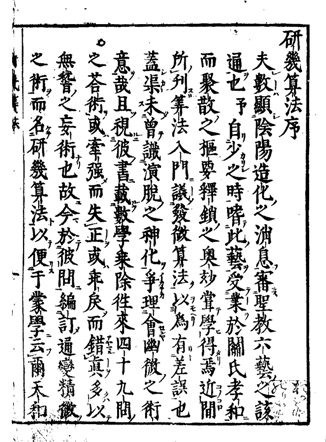 研幾算法序
夫數顯陰陽造化之消息審聖教六藝之該
通也予自少之時嗜此藝受業於關氏孝和
而聚散之樞要釋鎖之奧妙嘗學得焉近閱
所列筭法入門議發微算法以為有差誤也
蓋渠未曾識演脫之神化爭理會幽微之術
意哉且視彼書載數學乘除往來四十九問
之荅術或牽强而失正或乖戾而錯真多以
無稽之妄術也故今於彼問編訂通變精微
之術而名研幾算法以便于蒙學云爾天和